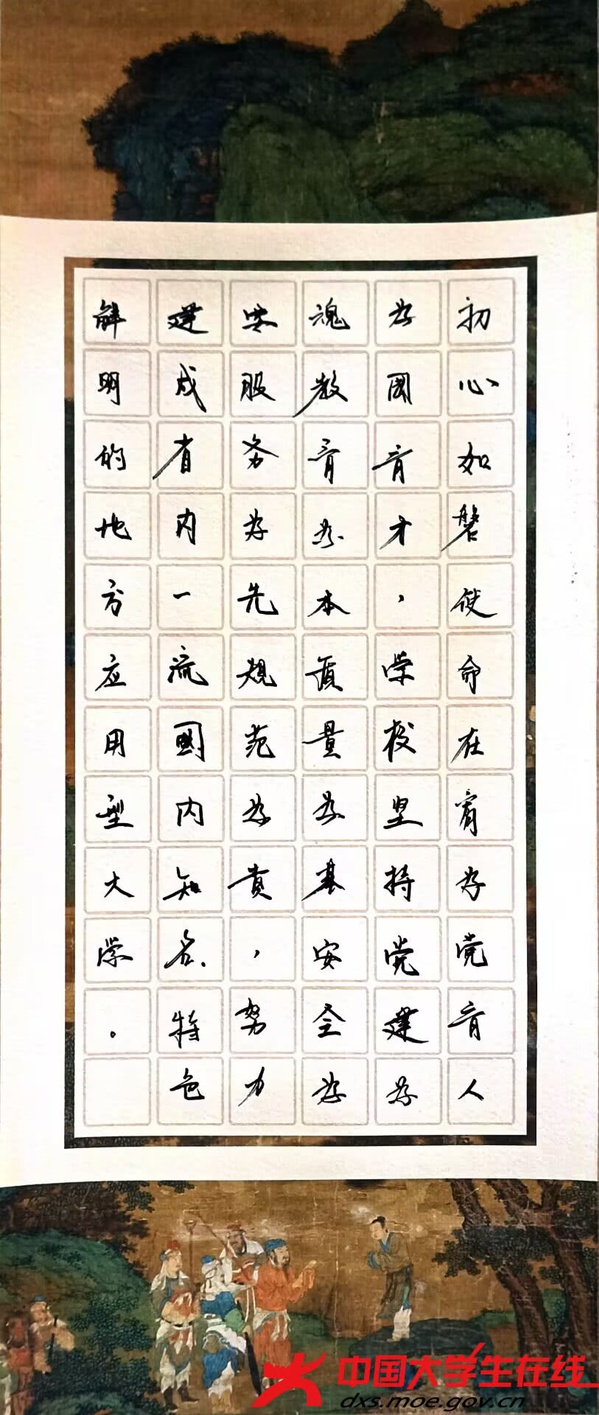 初心如磐使命在肩为党育人
为國育才，学校坚持党建为
魂教育为本质量为基安全为
要服务为先规范为贵，努力
建成省内一流國内知名、特色
鲜明的地方应用型大学。
中国大学生在线
dxs.moe.gov.cn